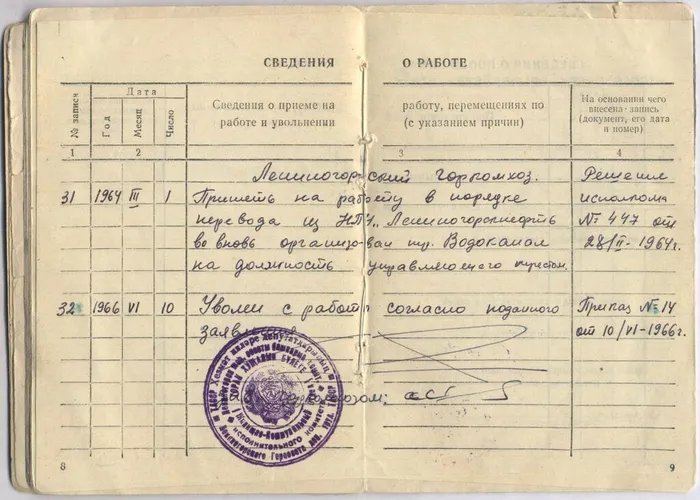 СВЕДЕНИЯ О РАБОТЕ
№ записи
Дата
Год
Месяц
Число
Сведения о приеме на работу, перемещениях по
работе и увольнении (с указанием причин)
На основании чего
внесена запись
(документ, его дата
и номер)
1 2 3 4
Лениногорский Горкомхоз.
31 1964 III 1 Принять на работу в порядке
перевода из НПУ „Лениногорскнефть
во вновь организован тр. Водоканал
на должность управляющего трестом.
Решение
исполкома
№ 447 от
28/II-1964г.
32 1966 VI 10 Уволен с работы согласно поданного
заявления
Приказ № 14
от 10/VI-1966г.
горкомхозом:
исполнительного комитета
Лениногорского Городского
8 9